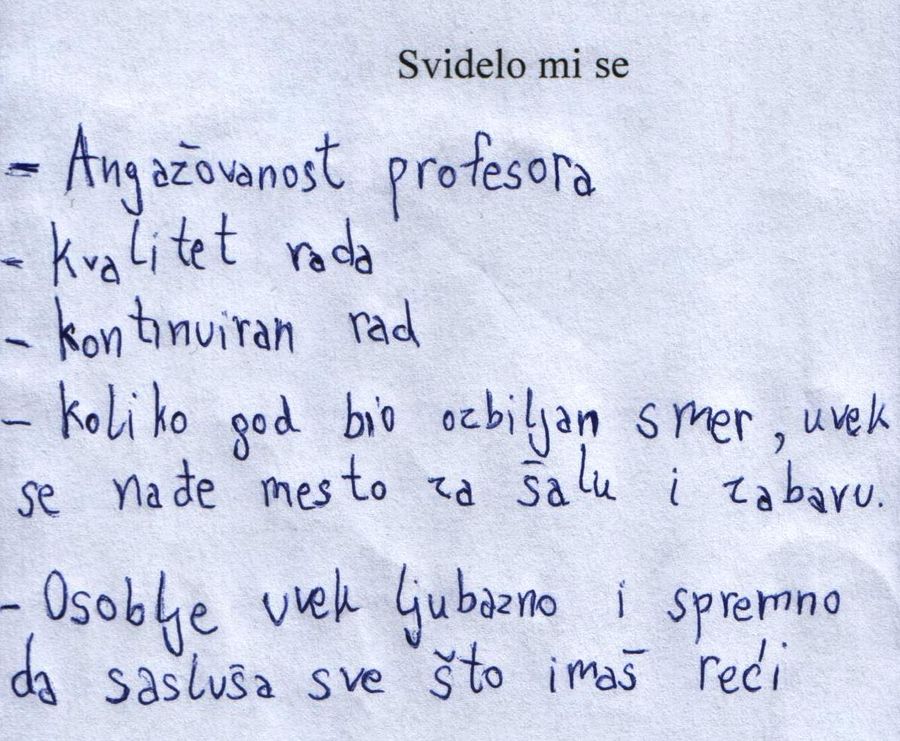 Svidelo mi se
- Angažovanost profesora
- kvalitet rada
- kontinuiran rad
- koliko god bio ozbiljan smer, uvek
se nađe mesto za šalu i zabavu.
- Osoblje uvek ljubazno i spremno
da sasluša sve što imaš reći